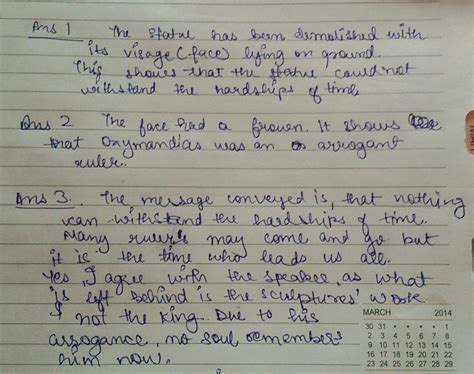 Ans 1 The statue has been demolished with
its visage (face) lying on ground.
This shows that the statue could not
withstand the hardships of time
Ans 2 The face had a frown. It shows
that Oxymandias was an arrogant
ruler.
Ans 3. The message conveyed is, that nothing
can withstand the hardships of time.
Many rulers may come and go but
it is the time who leads us all.
Yes, I agree with the speaker, as what
is left behind is the sculptures' work
& not the King. Due to his
arrogance, no soul remembers
him now.
MARCH 2014
30 31 • • • • 1
2 3 4 5 6 7 8
9 10 11 12 13 14 15
16 17 18 19 20 21 22
23 24 25 26 27 28 29